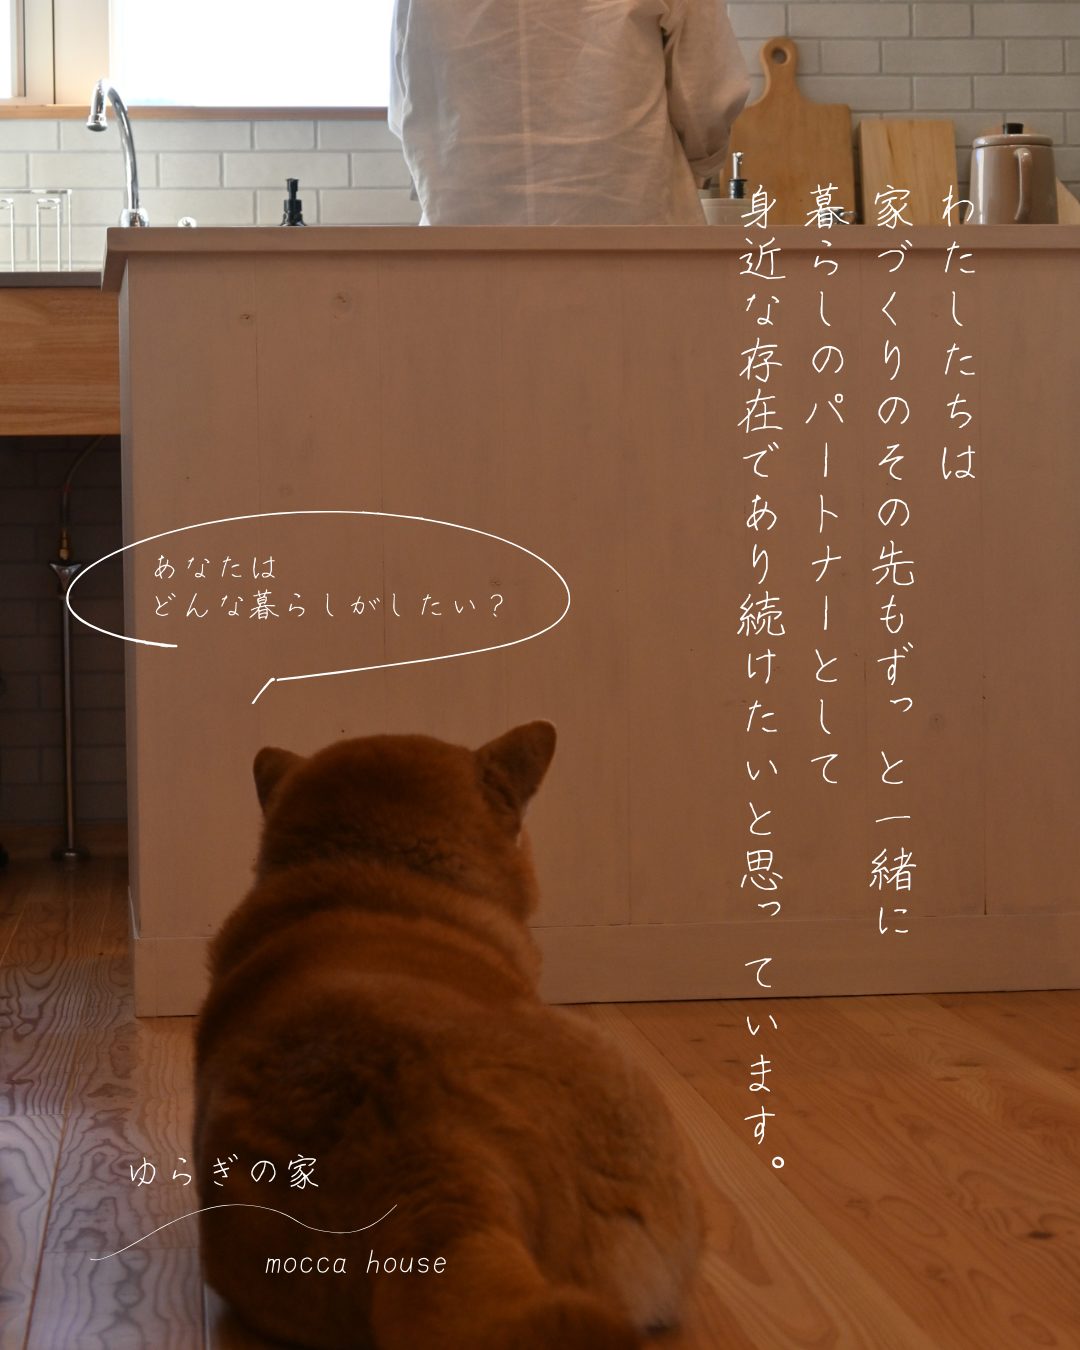 わたしたちは
家づくりのその先もずっと一緒に
暮らしのパートナーとして
身近な存在であり続けたいと思っています。
あなたは
どんな暮らしがしたい？
ゆらぎの家
mocca house